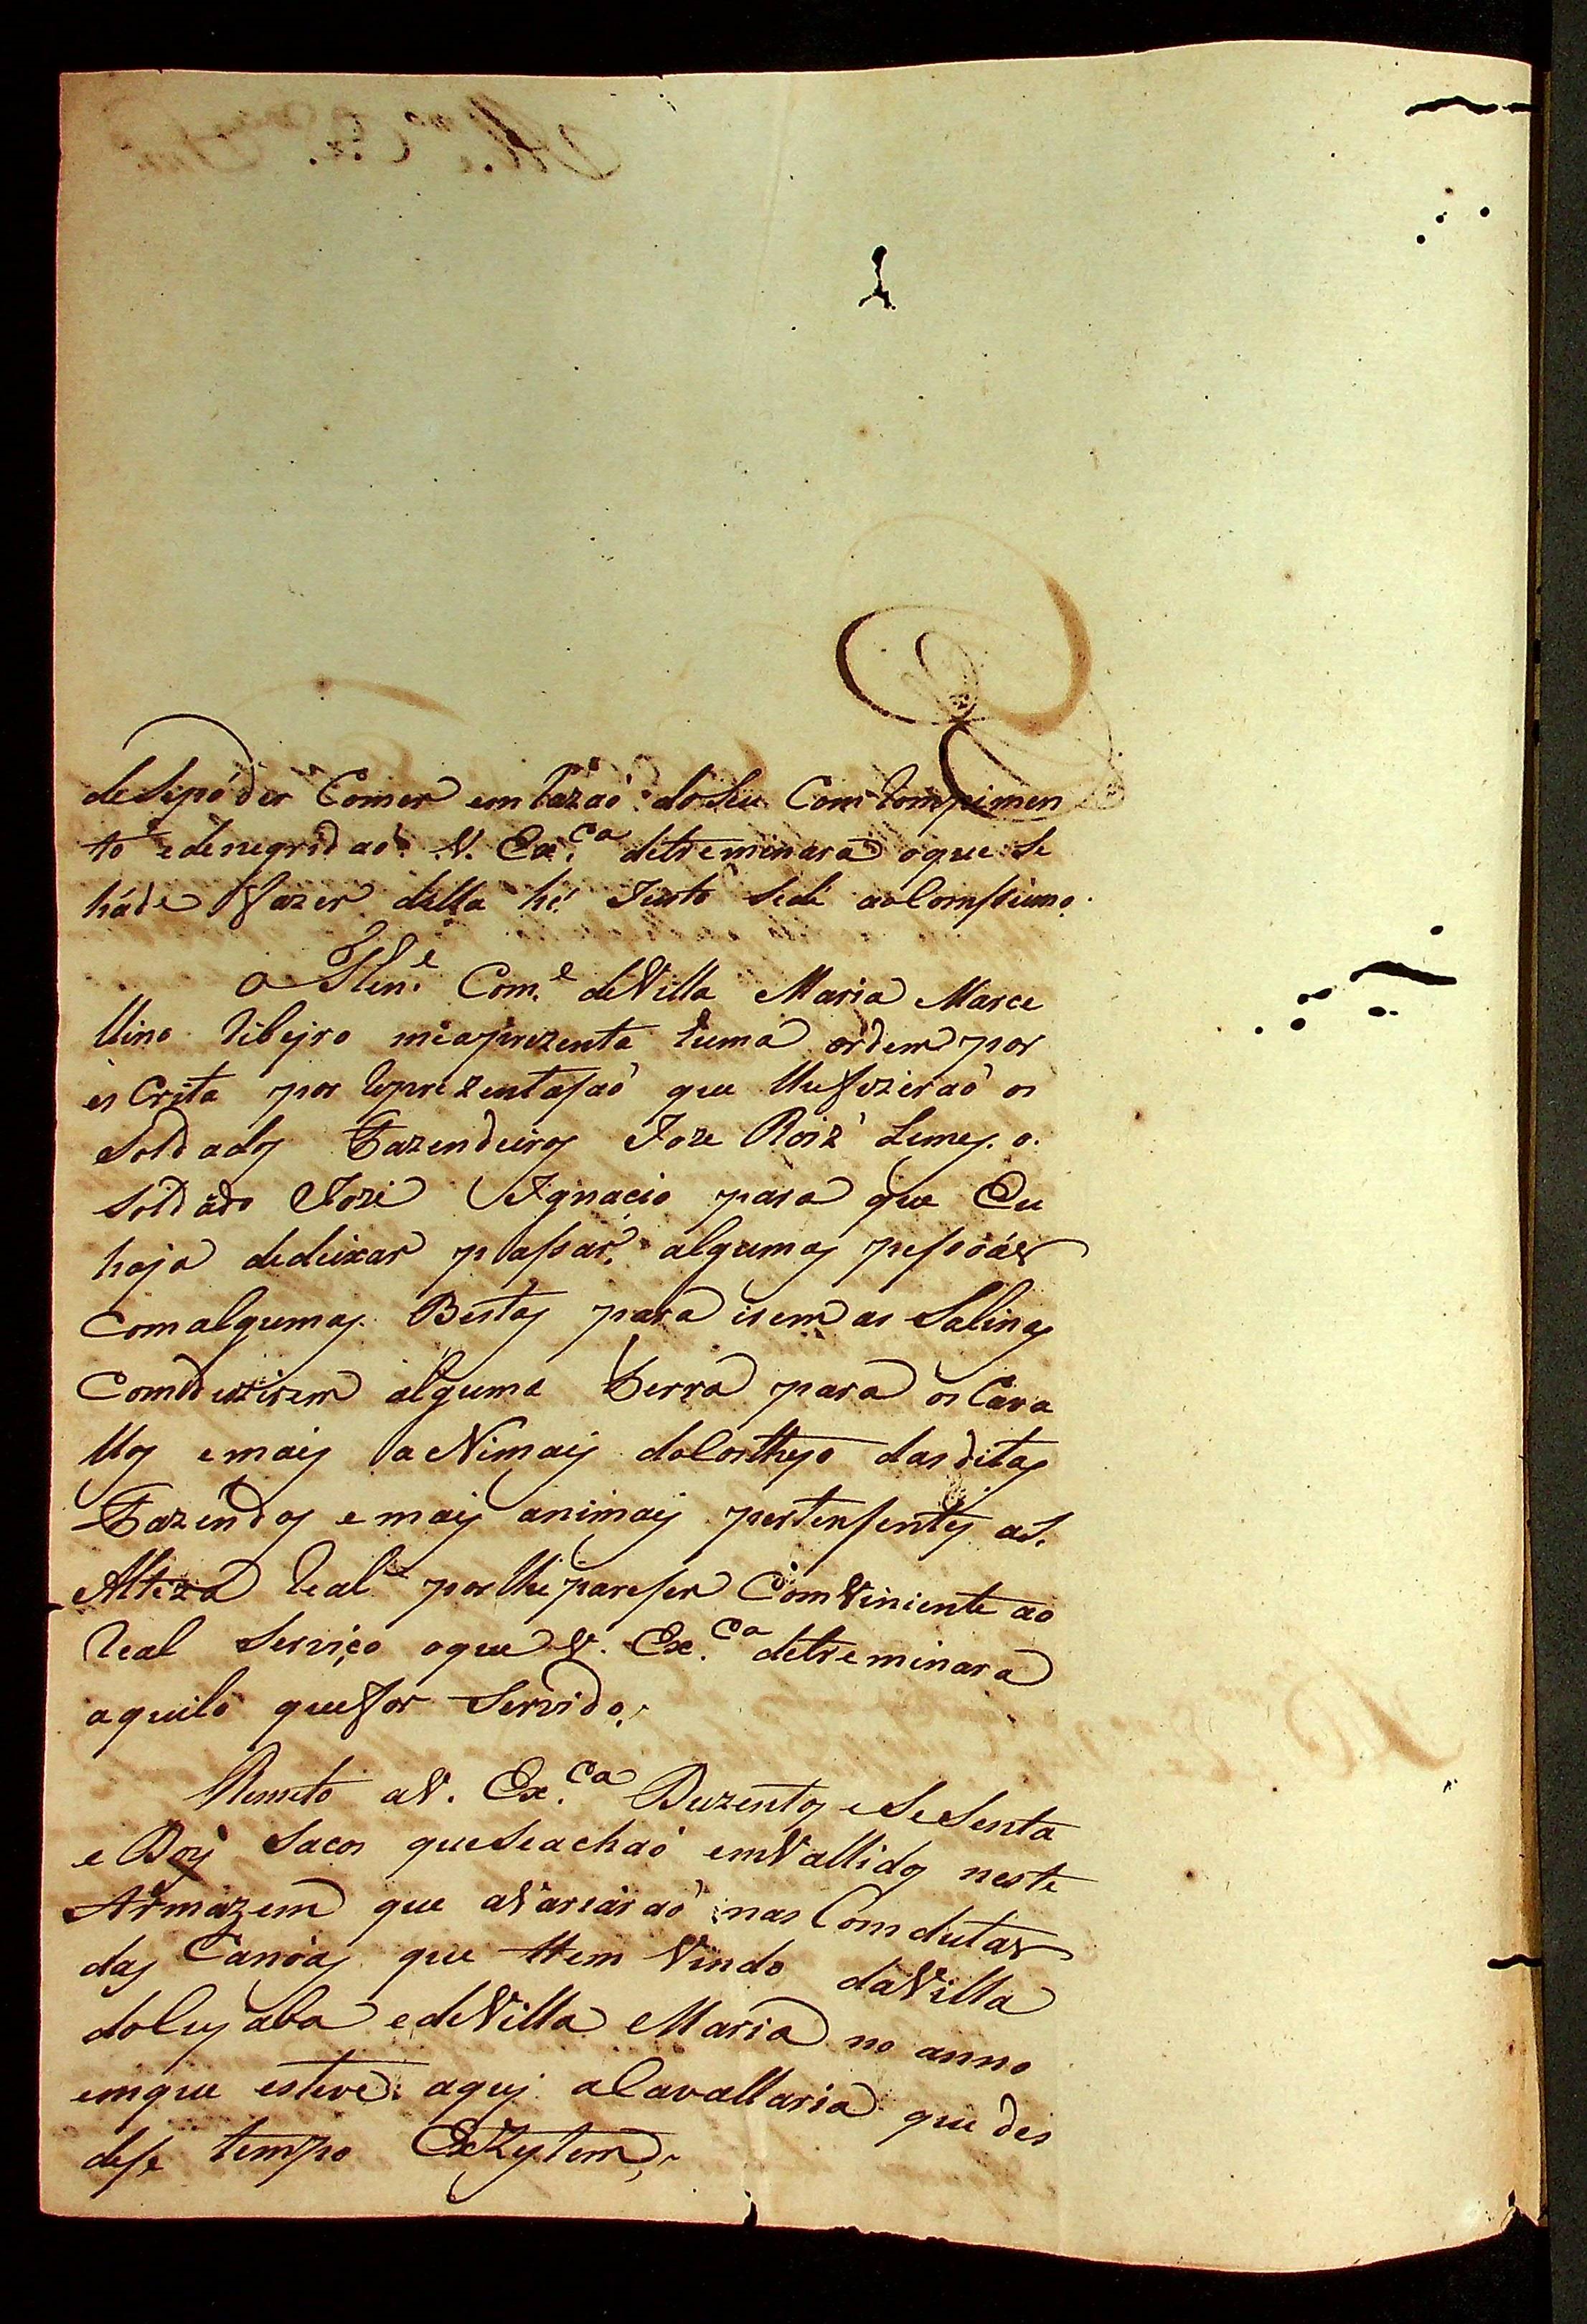 desepóder Comer em Razaó do Seu Com Rompimen
to edenegridaó V. Ex.ca detreminará oque Se
háde Fazer della hé Justo Sedê aoComssumo.
O Then.e Com.e deVilla Maria Marce
llino Ribejro meaprezenta huma ordem por
es Crita por Reprezentasaó que lhefizeraó os
Soldados Fazendeiros Joze Roiz' Lemes. o
Soldado Jozé Ignacio para que Eu
haja dedeixar passar algumas pessoas
Comalgumas Bestas para irem as Salinas
Comduzirem alguma Terra para os Cava
llos emais a Nimais doCostheyo dasditas
Fazendas emais animais pertensentes aS.
Alteza Real porlhe pareser ComViniente ao
Real Serviço oque V. Ex.ca detreminará
aquilo queFor Servido.
Remeto aV. Ex.ca Duzentos eSeSenta
e Dois Sacos queSeachaó emVallidos neste
Armazem que aVariaraó nas Comdutas
das Canoas que ttem Vindo daVilla
doCujaba edeVilla Maria no anno
emque esteve aquj aCavallaria que des
desse tempo ExZystem,